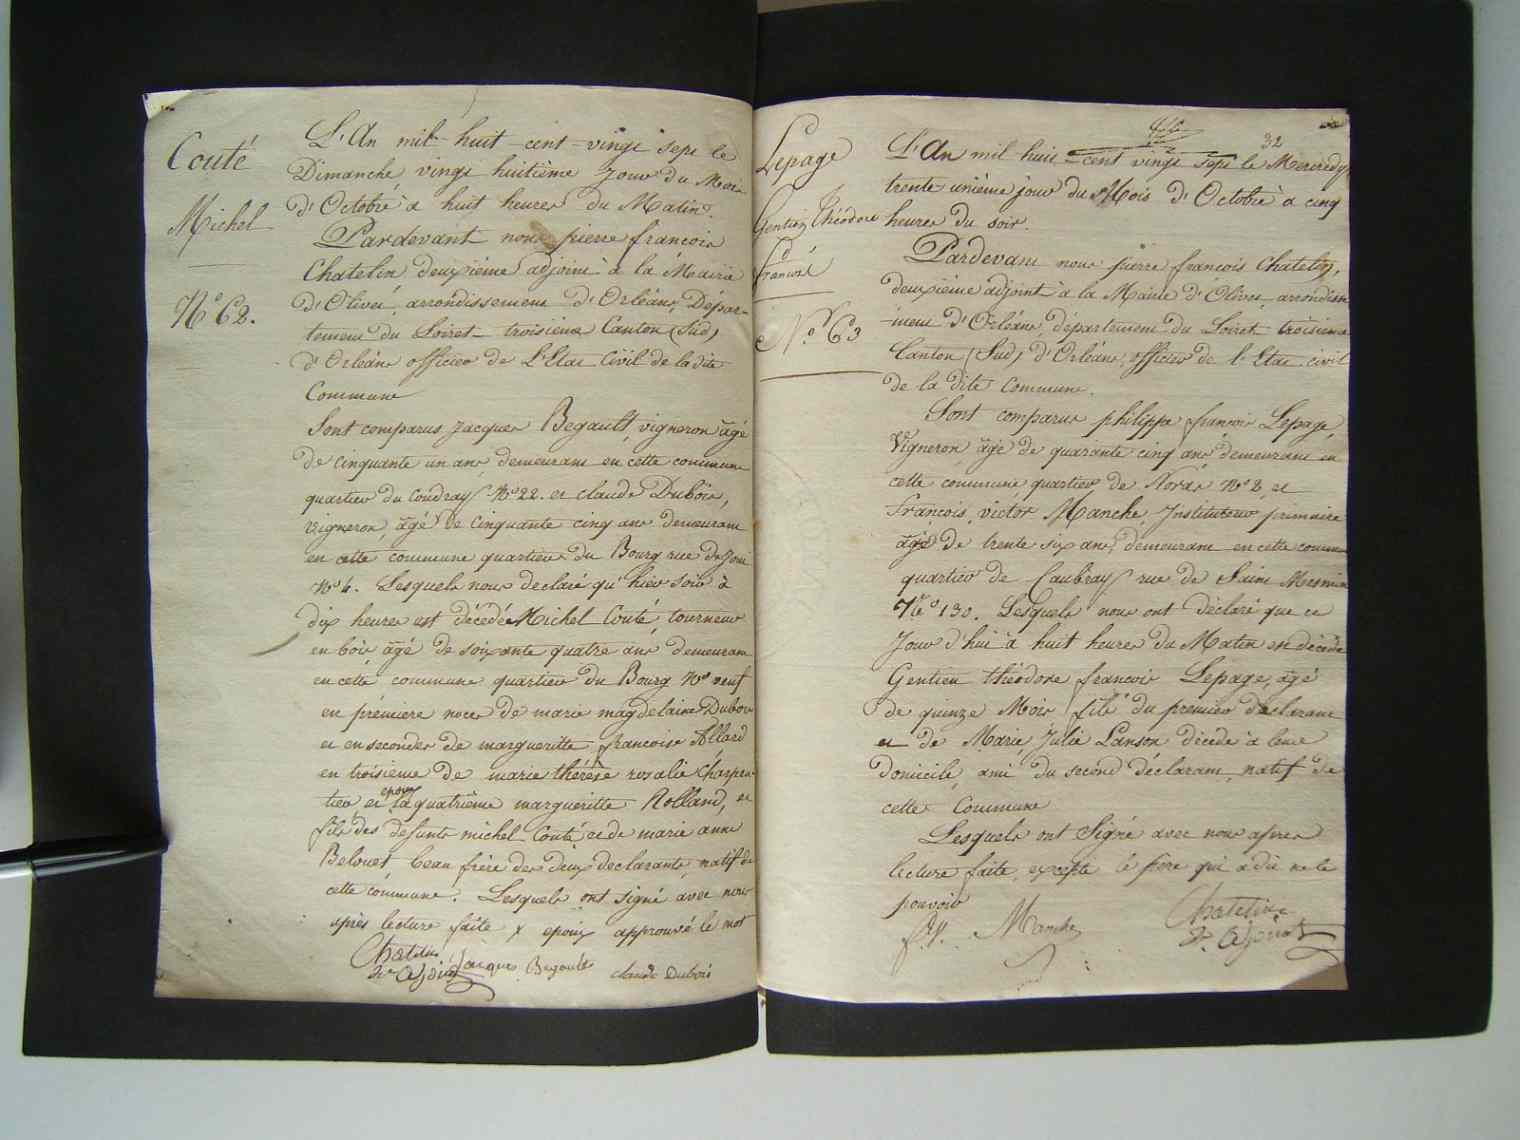 Couté
Michel
N.º 62.
L'An mil huit cent vingt sept le
Dimanche vingt huitième jour du Mois
d'Octobre à huit heures du Matin.
Pardevant nous pierre françois
Chatelin deuxième adjoint à la Mairie
d'Olivet, arrondissement d'Orléans, Dépar-
tement du Loiret troisième Canton (Sud)
d'Orléans officier de L'Etat Civil de la dite
Commune
Sont comparus jacques Begault, vigneron âgé
de cinquante un ans demeurant en cette commune
quartier du Coudray Nº 22. et claude Dubois,
vigneron, âgé de Cinquante cinq ans demeurant
en cette commune quartier du Bourg rue de
Nº 4. Lesquels nous declaré qu'hier soir à
dix heures est décédé Michel Couté, tourneur
en bois âgé de soixante quatre ans demeurant
en cette commune quartier du Bourg Nº neuf
en première noces de marie magdelaine Dubois
et en secondes de margueritte françoise Allard
en troisieme de marie thérèse rosalie Charpen-
tier et epoux sa quatrième margueritte Rolland, et
fils des defunts michel Couté et de marie anne
Belouet beau frère des deux declarants, natif de
cette commune. Lesquels ont signé avec nous
après lecture faite x epoux approuvé le mot
Chatelin
2e Adjoint Jacques Begault claude Dubois
32
Lepage
Gentien Théodore
françois
Nº 63
L'An mil huit cent vingt sept le Mercredy
trente unième jour du Mois d'Octobre à cinq
heures du soir.
Pardevant nous pierre françois Chatelin,
deuxième adjoint à la Mairie d'Olivet arrondisse
-ment d'Orléans, département du Loiret troisieme
Canton (Sud) d'Orléans, officier de l'Etat civil
de la dite Commune.
Sont comparus philippe françois Lepage,
Vigneron âgé de quarante cinq ans demeurant en
cette commune quartier de Nº 8, et
François victor Manche, Instituteur primaire
âgé de trente six ans, demeurant en cette commune
quartier de Caubray rue de Saint Mesmin
Nº 130. Lesquels nous ont déclaré que ce
Jour d'hui à huit heures du Matin est décédé
Gentien théodore françois Lepage, âgé
de quinze Mois, fils du premier déclarant
et de Marie Julie Lanson décédé à leur
domicile, ami du second déclarant, natif de
cette Commune
Lesquels ont Signé avec nous après
lecture faite, excepté le père qui a dit ne le
pouvoir
Manche
Chatelin
2e Adjoint